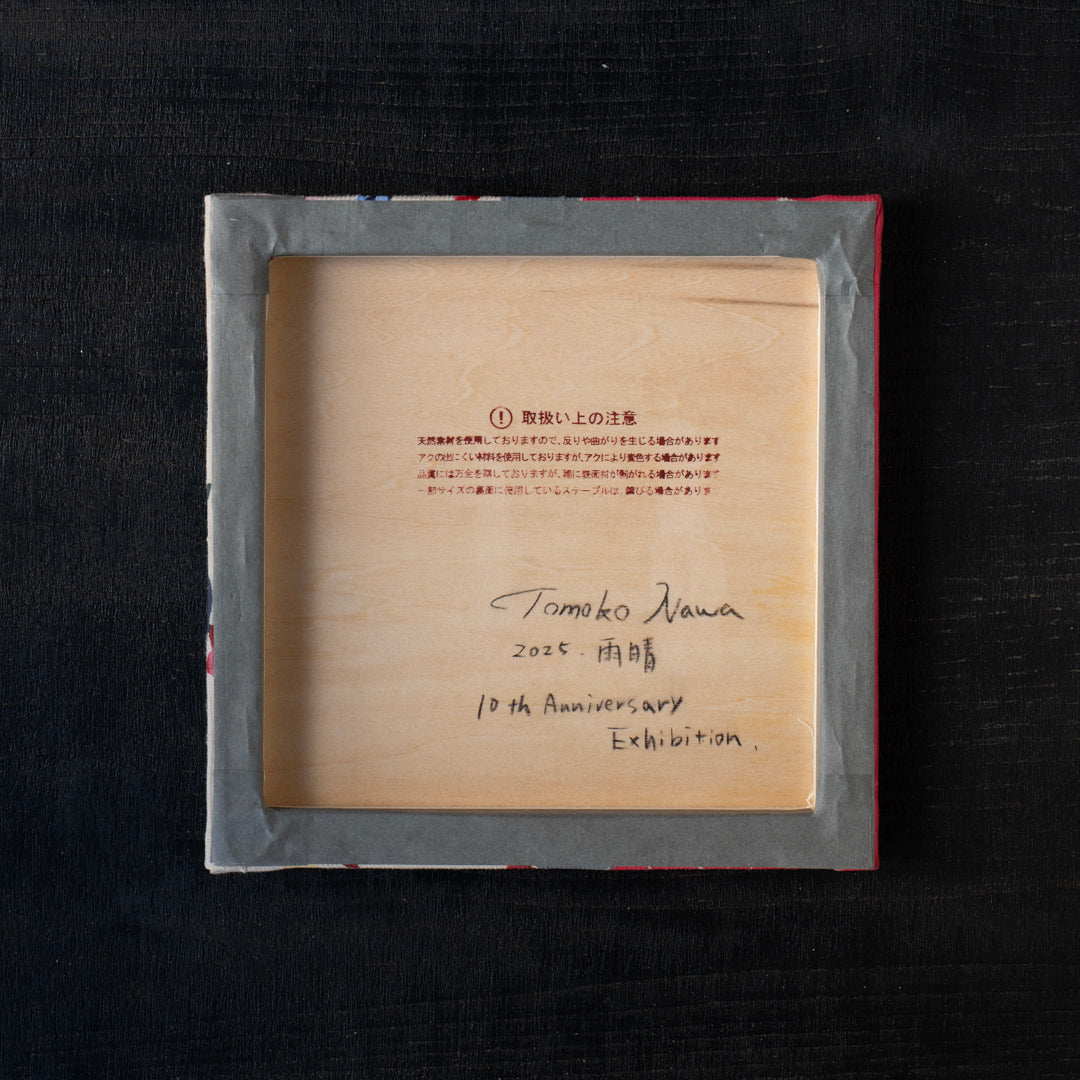 ! 取扱い上の注意
天然素材を使用しておりますので、反りや曲がりを生じる場合があります
アクの出にくい材料を使用しておりますが、アクにより変色する場合があります
品質には万全を期しておりますが、稀に表面材が剥がれる場合があります
一部サイズの裏面に使用しているステープルは、錆びる場合があります
Tomoko Nawa
2025. 雨晴
10th Anniversary
Exhibition.